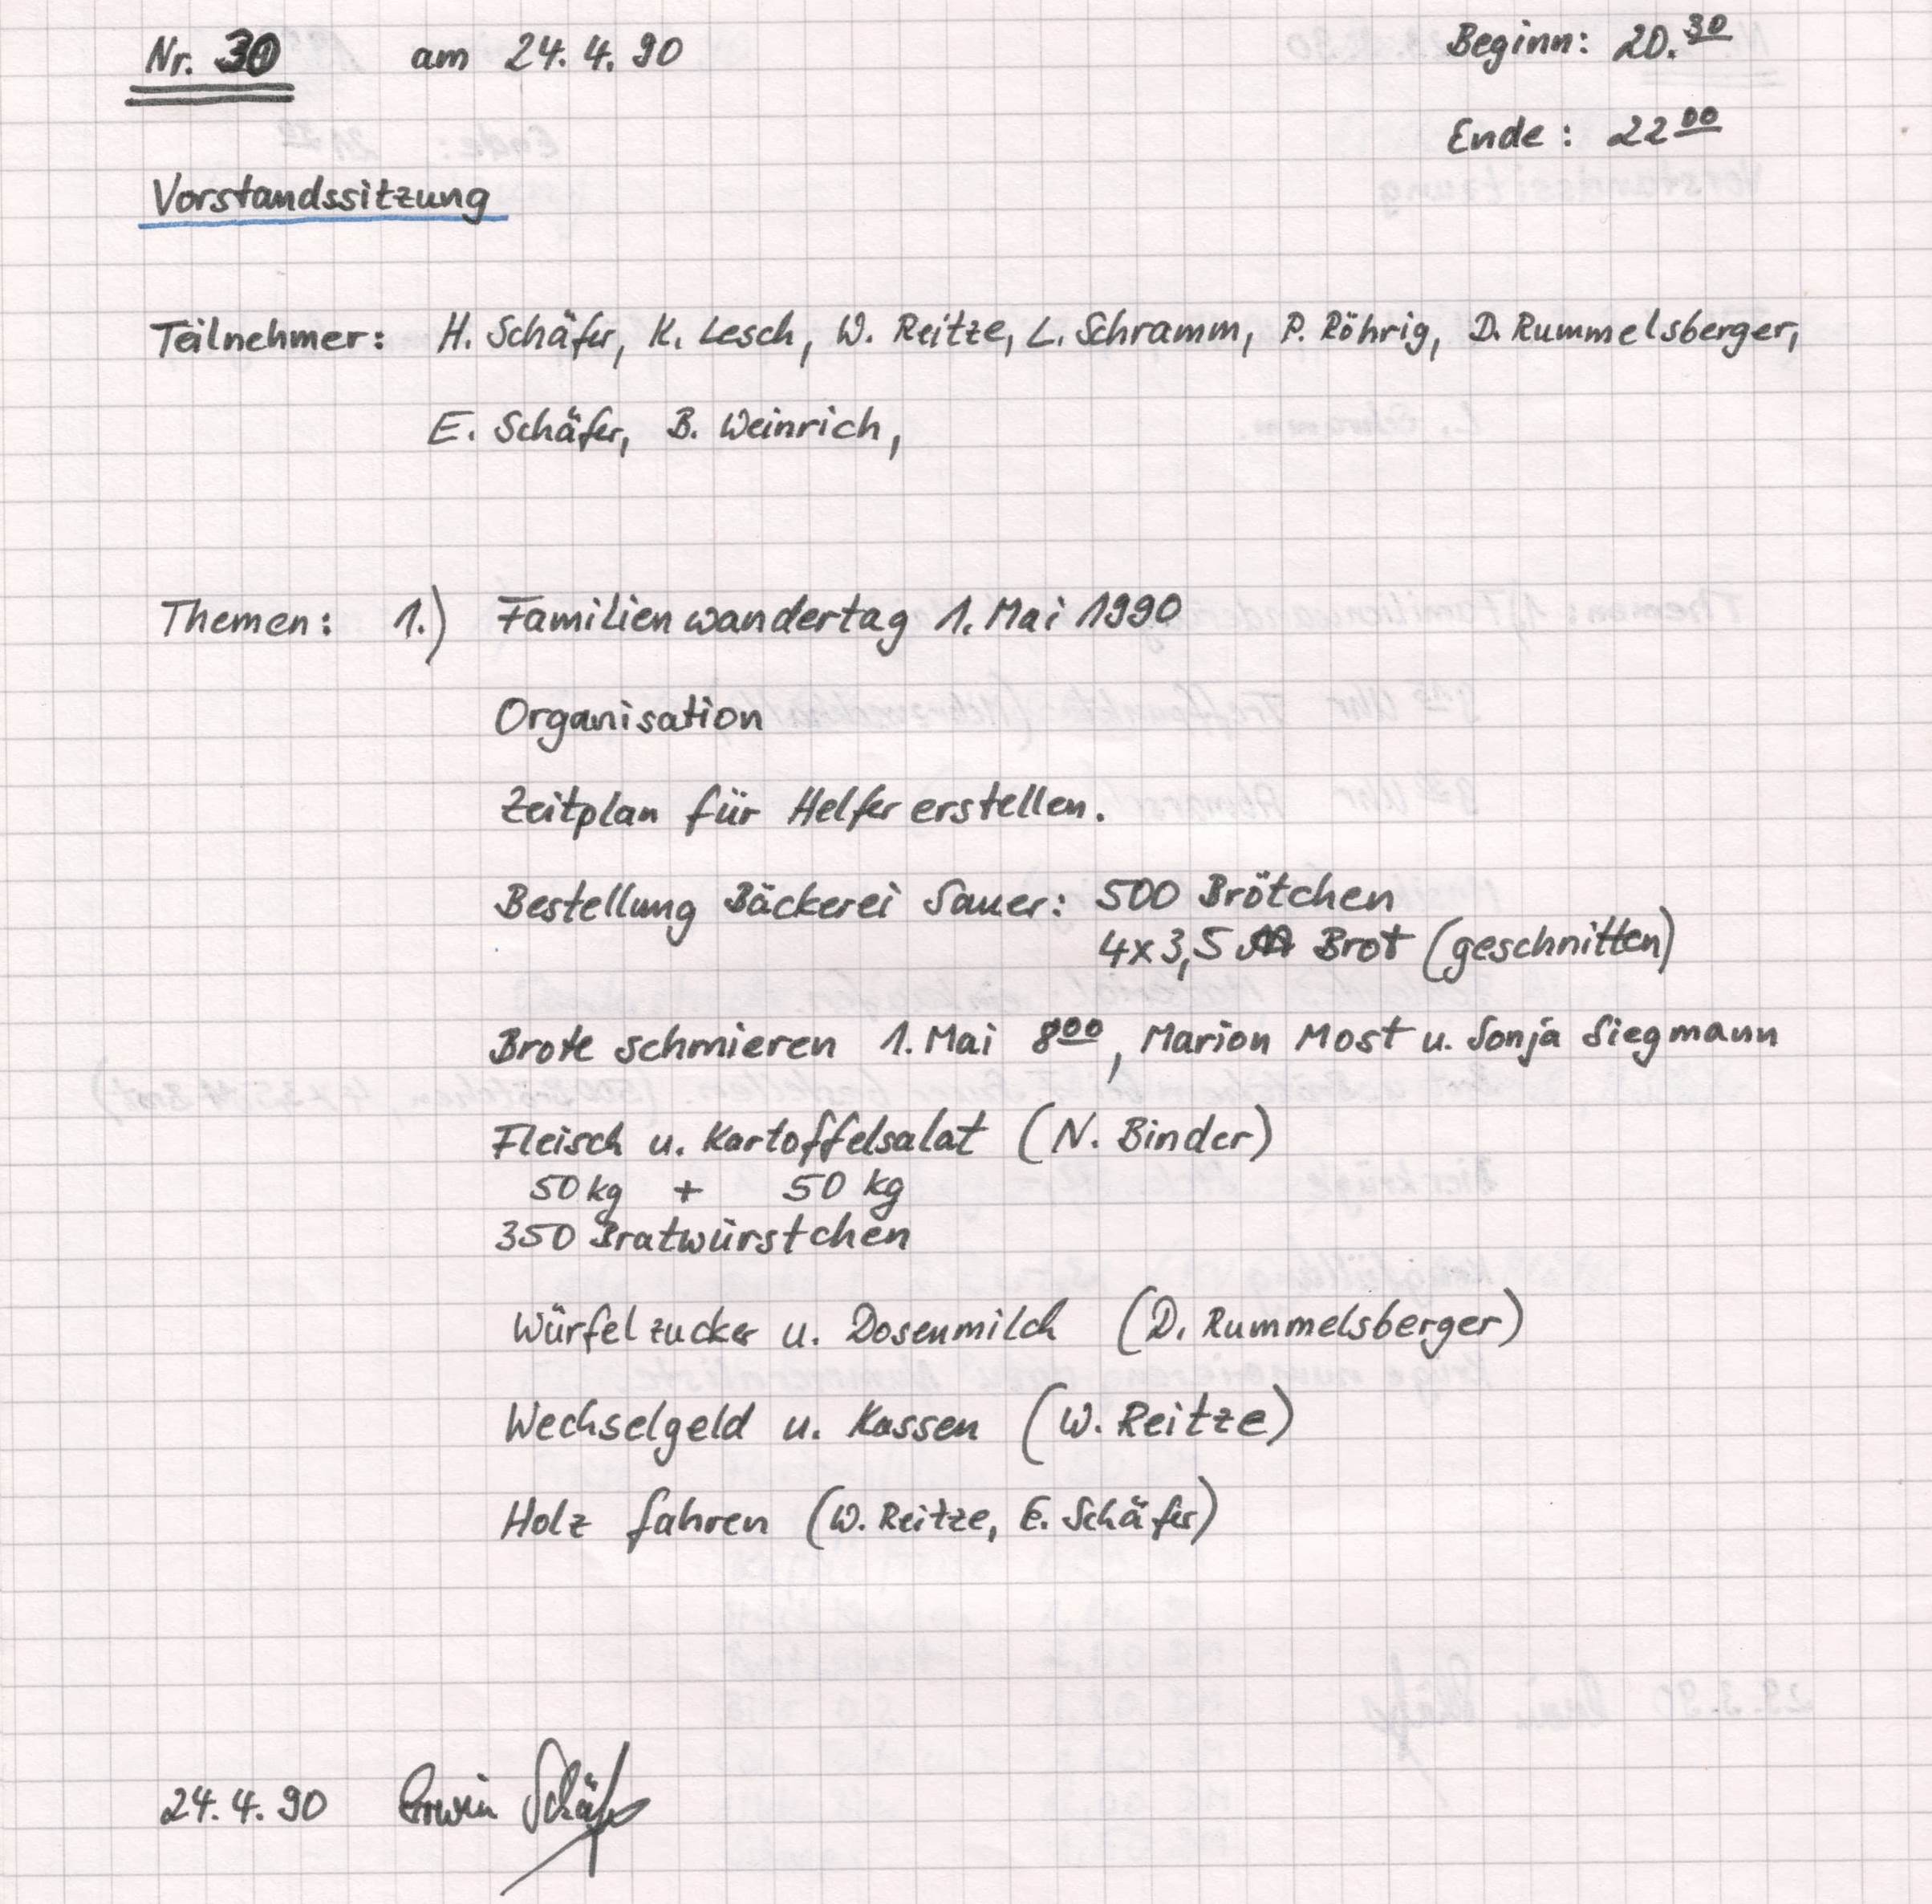 Nr. 30 am 24.4.90 Beginn: 20.30
Ende: 22 00
Vorstandssitzung
Teilnehmer: H. Schäfer, K. Lesch, W. Reitze, L. Schramm, P. Röhrig, D. Rummelsberger,
E. Schäfer, B. Weinrich,
Themen: 1.) Familienwandertag 1. Mai 1990
Organisation
Zeitplan für Helfer erstellen.
Bestellung Bäckerei Sauer: 500 Brötchen
4x3,5 Brot (geschnitten)
Brote schmieren 1. Mai 8 00, Marion Most u. Sonja Siegmann
Fleisch u. Kartoffelsalat (N. Binder)
50 kg + 50 kg
350 Bratwürstchen
Würfelzucker u. Dosenmilch (D. Rummelsberger)
Wechselgeld u. Kassen (W. Reitze)
Holz fahren (W. Reitze, E. Schäfer)
24.4.90 Erwin Schäfer